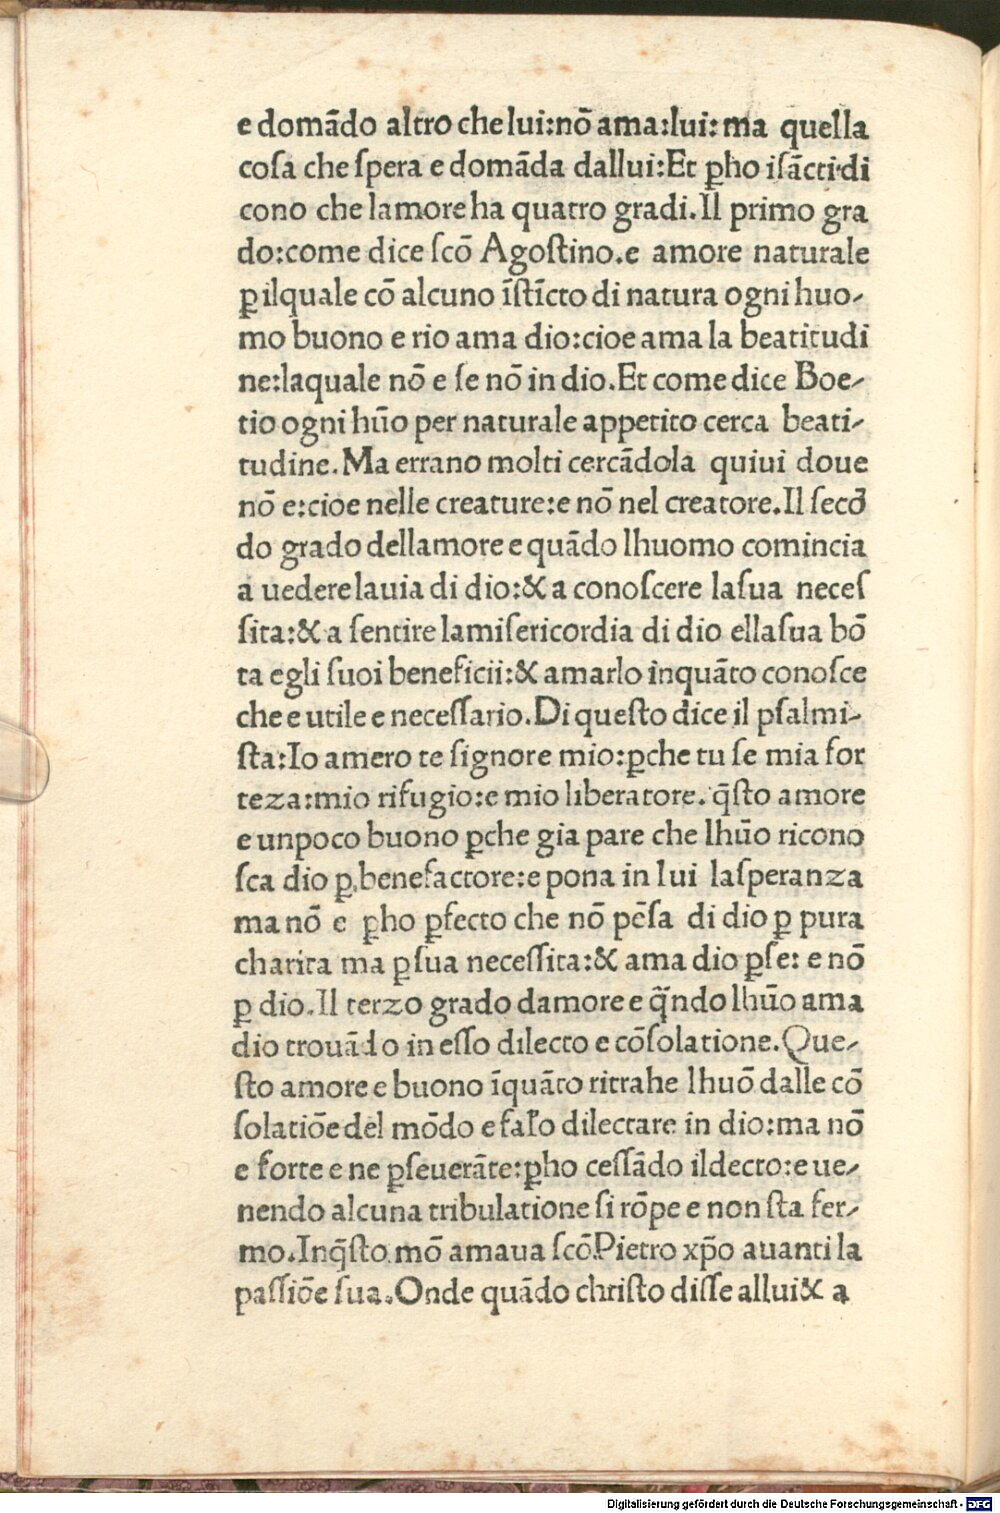 e domādo altro che lui:nō ama:lui: ma quella
coſa che ſpera e domāda dallui:Et ꝑho iſācti·di
cono che lamore ha quatro gradi.Il primo gra
do:come dice ſcō Agoſtino.e amore naturale
ꝑ ilquale cō alcuno īſtīcto di natura ogni huo-
mo buono e rio ama dio:cioe ama la beatitudi
ne:laquale nō e ſe nō in dio.Et come dice Boe-
tio ogni hūo per naturale appetito cerca beati-
tudine.Ma errano molti cercādola quiui doue
nō e:cioe nelle creature:e nō nel creatore.Il ſecō
do grado dellamore e quādo lhuomo comincia
a uedere lauia di dio:& a conoſcere laſua neceſ
ſita:& a ſentire lamiſericordia di dio ellaſua bō
ta egli ſuoi beneficii:& amarlo inquāto conoſce
che e utile e neceſſario.Di queſto dice il pſalmi-
ſta:Io amero te ſignore mio:ꝑche tu ſe mia for
teza:mio rifugio:e mio liberatore. q̄ſto amore
e unpoco buono ꝑche gia pare che lhūo ricono
ſca dio ꝑ benefactore:e pona in lui laſperanza
ma nō e ꝑho ꝑfecto che nō pēſa di dio ꝑ pura
charita ma ꝑ ſua neceſſita:& ama dio ꝑ ſe: e nō
ꝑ dio.Il terzo grado damore e q̄ndo lhūo ama
dio trouādo in eſſo dilecto e cōſolatione.Que-
ſto amore e buono īquāto ritrahe lhuō dalle cō
ſolatiōe del mōdo e falſo dilectare in dio:ma nō
e forte e ne ꝑſeuerāte:ꝑho ceſſādo ildecto:e ue-
nendo alcuna tribulatione ſi rōpe e non ſta fer-
mo.Inq̄ſto mō amaua ſcō Pietro xp̄o auanti la
paſſiōe ſua.Onde quādo chriſto diſſe allui& a
Digitalisierung gefördert durch die Deutsche Forschungsgemeinschaft - DFG